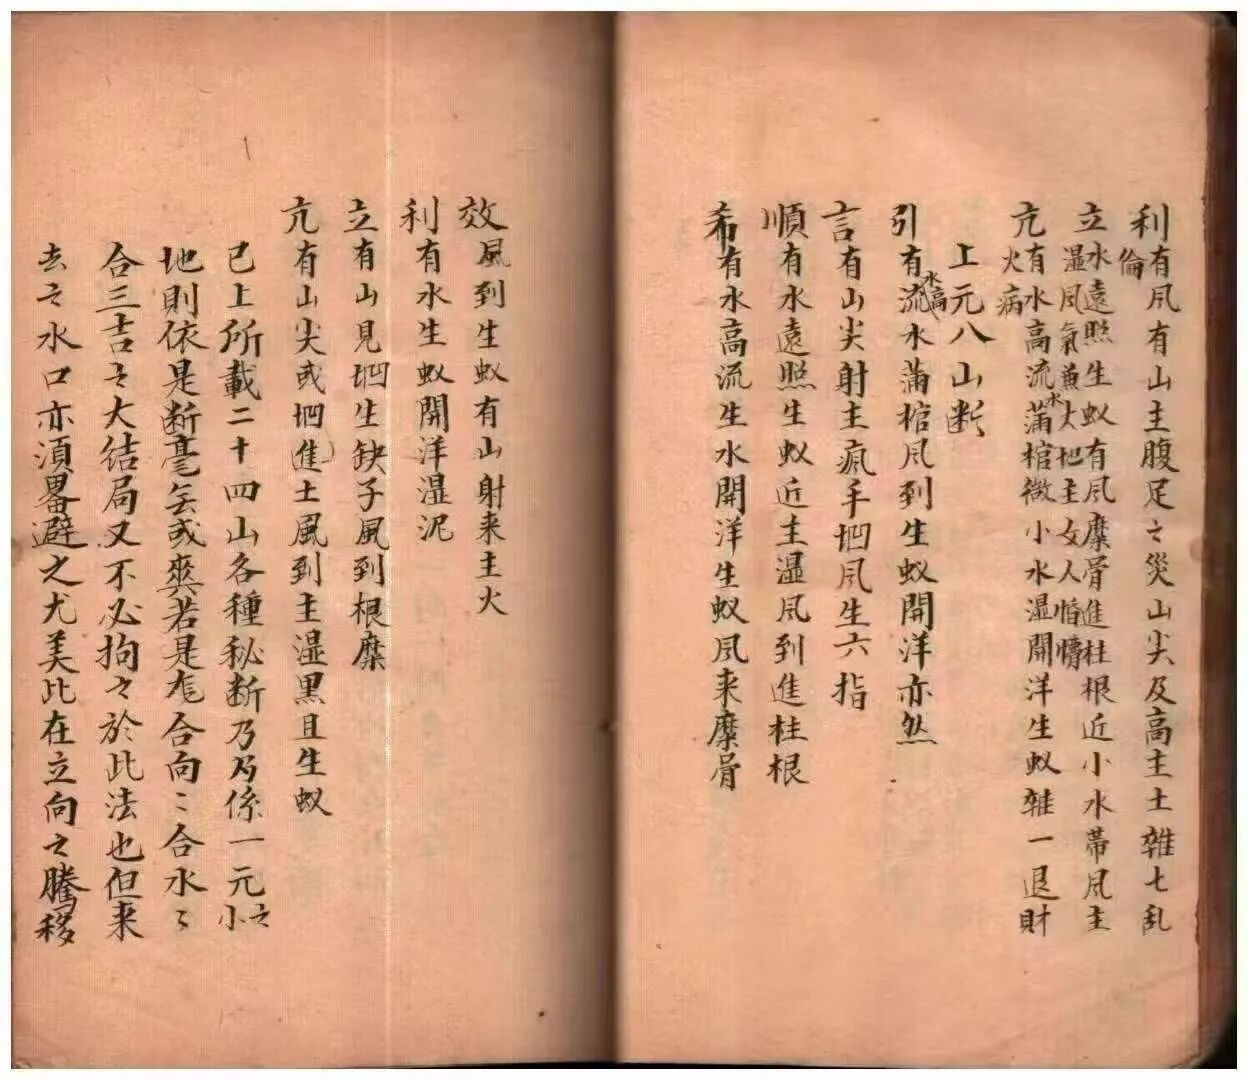 利有凨有山主腹足之災山尖及高主土雜七乱
倫
立水遠照生蚁有凨糜骨進柱根近小水帯凨主
湿凨氣兼大地主女人惛懵
亢有水高流水蒲棺微小水湿開洋生蚁雜一退財
火病
上元八山断
引有水高流水蒲棺凨到生蚁開洋亦然
言有山尖射主瘋手凹凨生六指
順有水遠照生蚁近主湿凨到進柱根
希有水高流生水開洋生蚁凨来糜骨
效風到生蚁有山射来主火
利有水生蚁開洋湿泥
立有山見凹生缺子風到根糜
亢有山尖或凹進土風到主湿黑且生蚁
已上所載二十四山各種秘断乃係一元之小
地則依是断毫無或爽若是龙合向〻合水〻
合三吉之大结局又不必拘之於此法也但来
去之水口亦須畧避之尤美此在立向之騰移